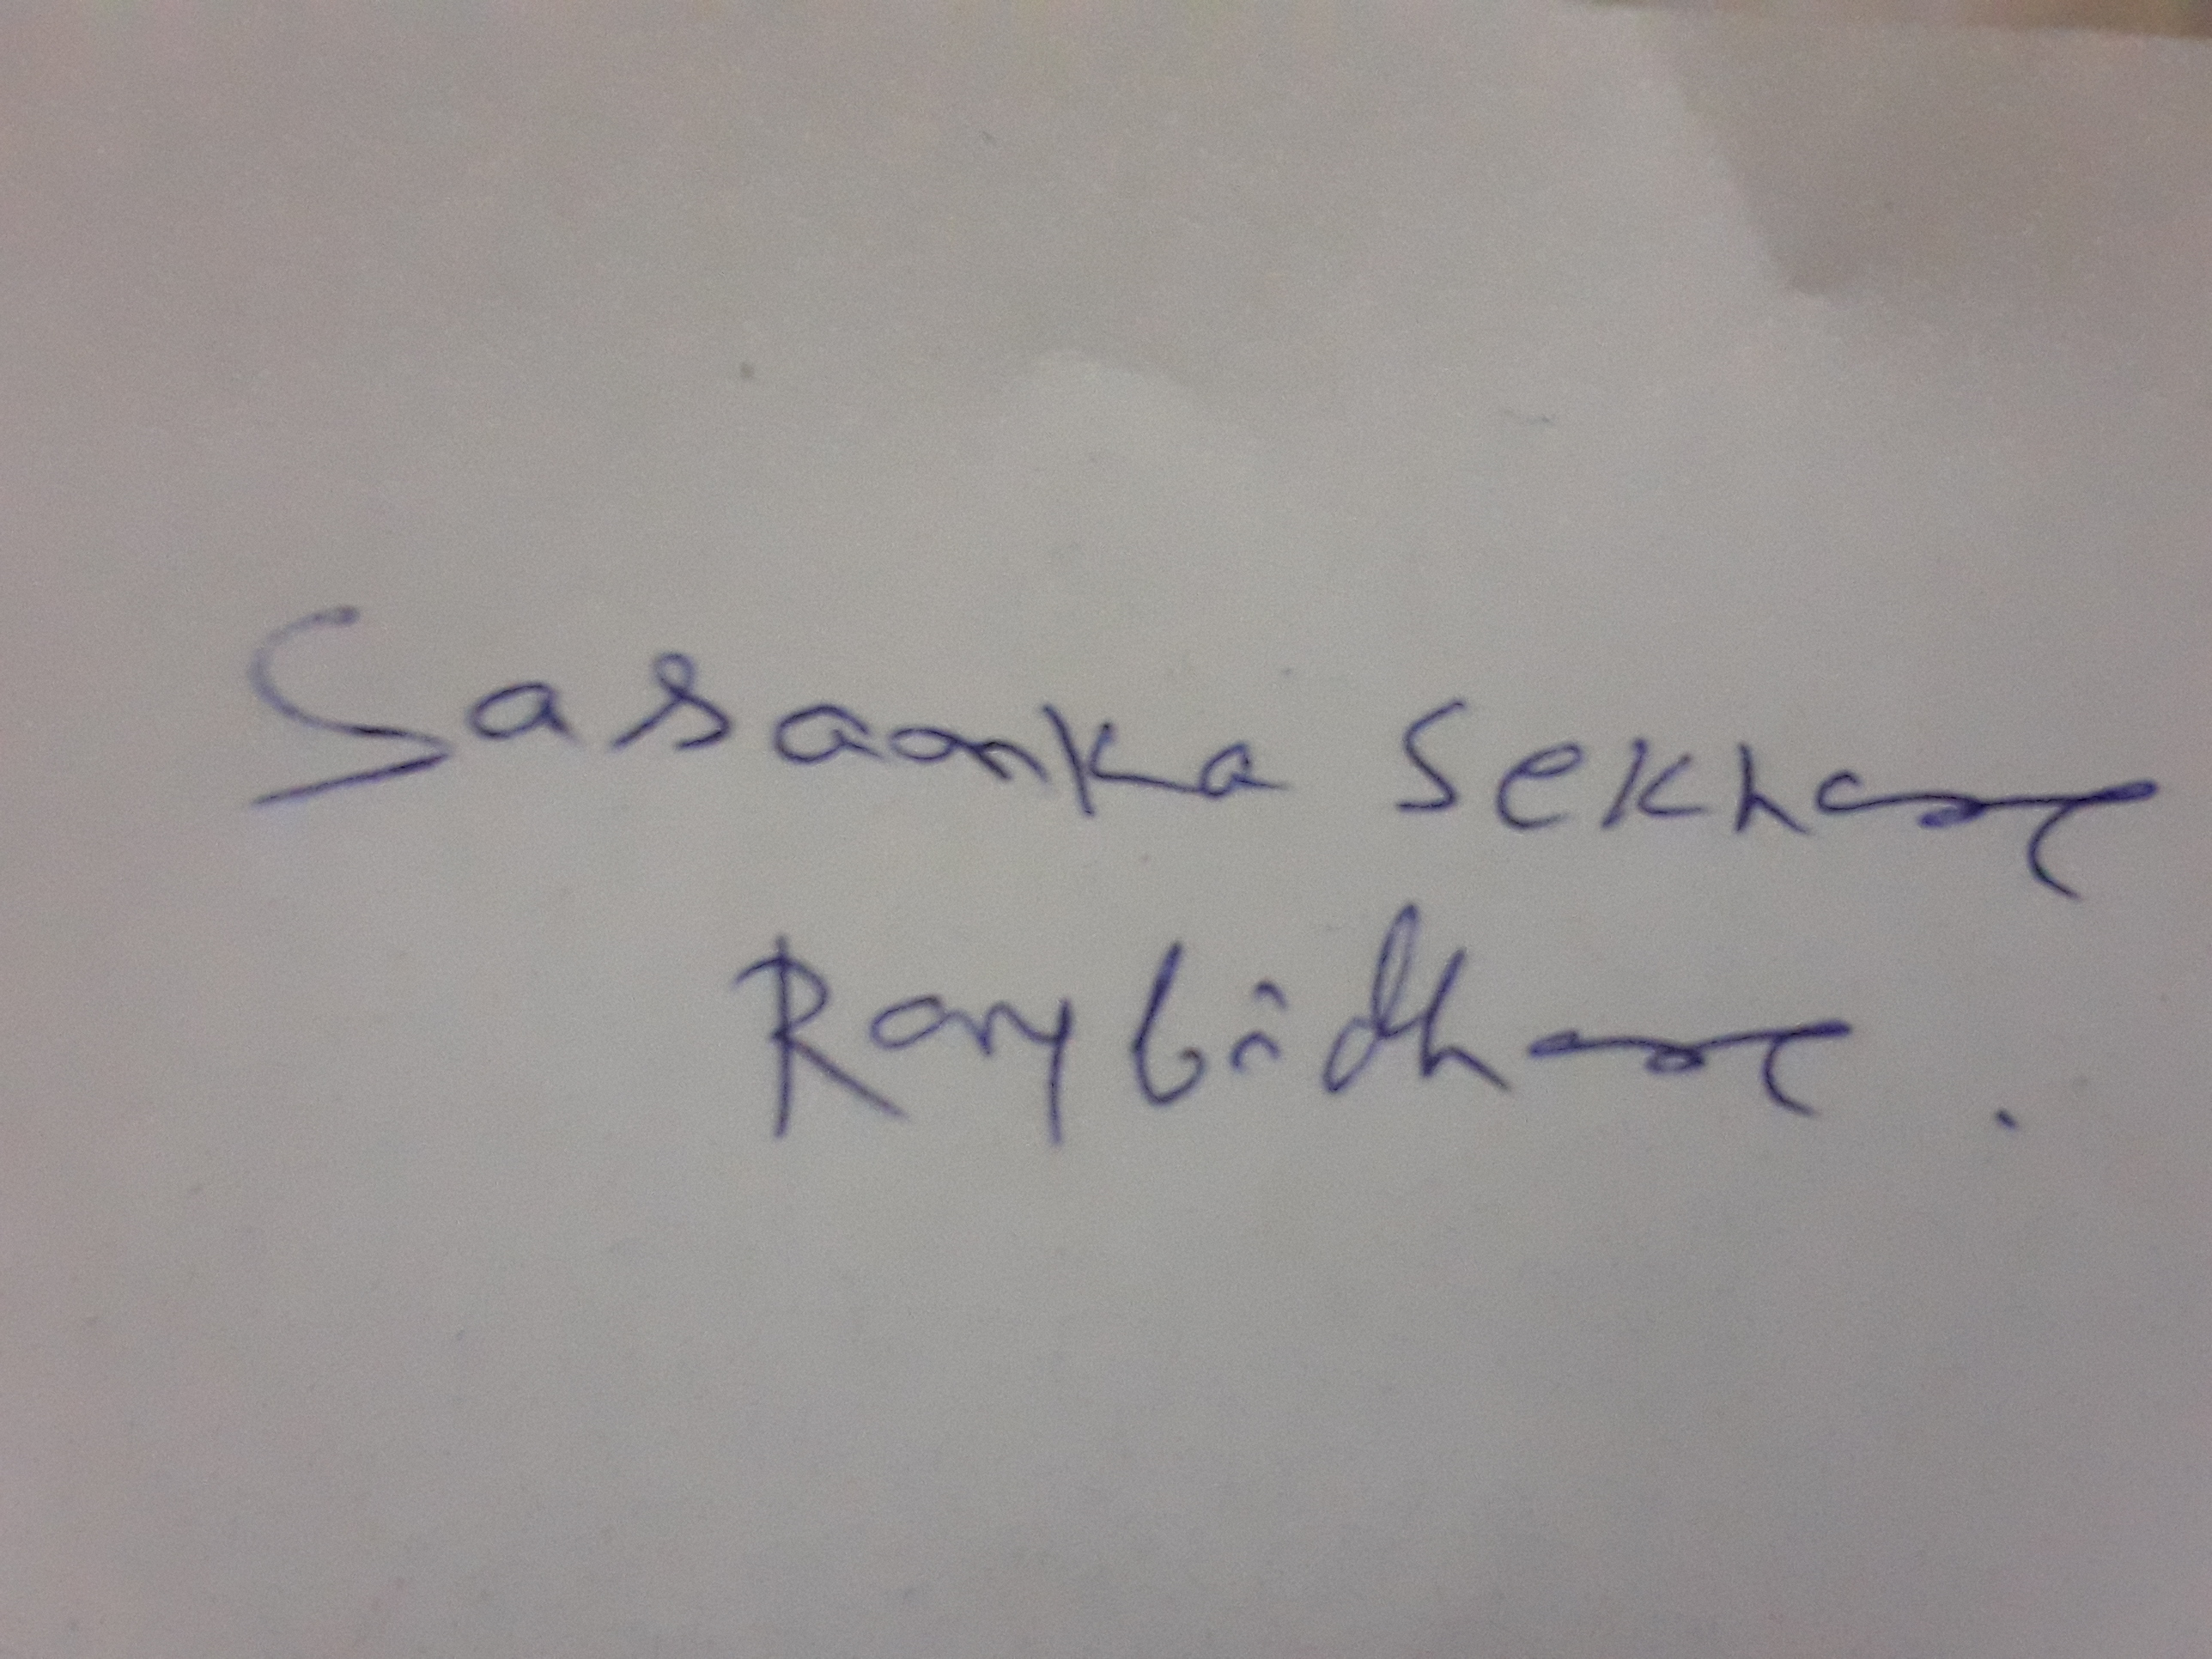 Sasaanka Sekhar
Raybidhar.